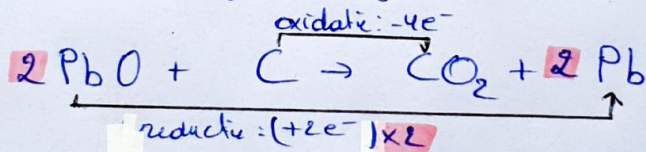 oxidatie: -4e⁻
2 PbO + C → CO₂ + 2 Pb
reductie: (+2e⁻) x2